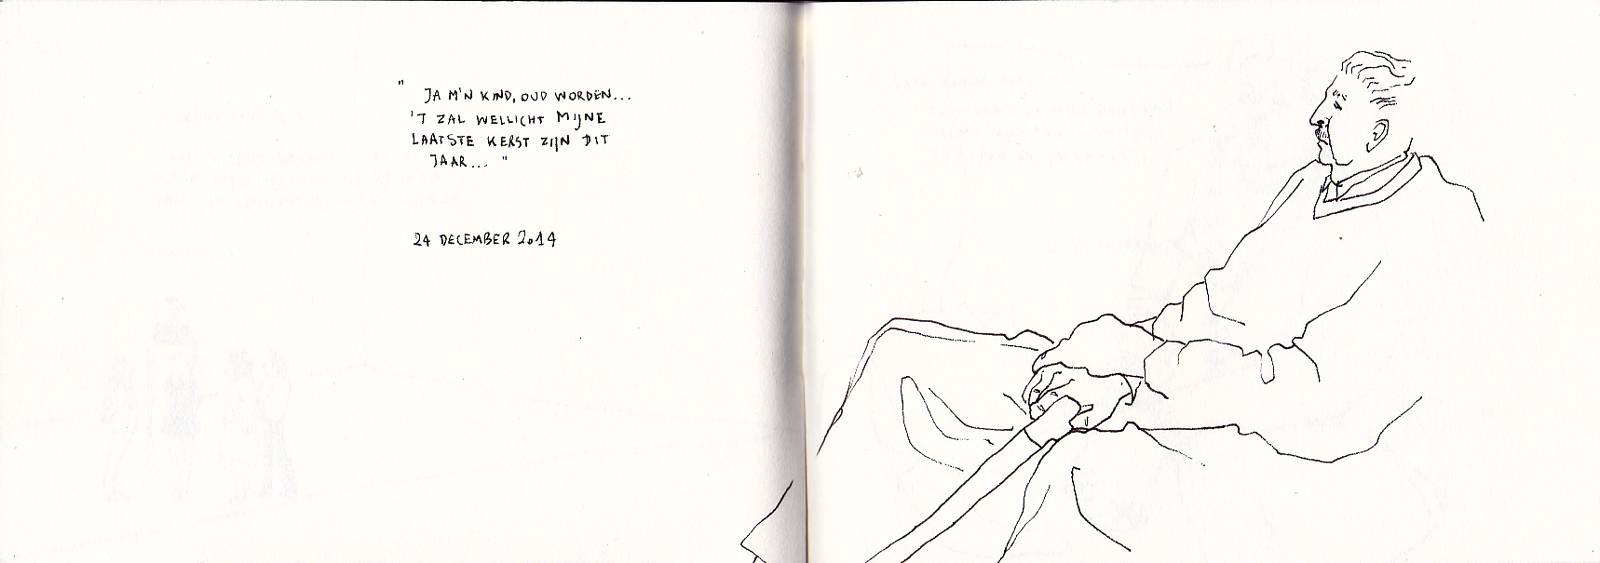 " JA M'N KIND, OUD WORDEN...
'T ZAL WELLICHT MIJNE
LAATSTE KERST ZIJN DIT
JAAR... "
24 DECEMBER 2014